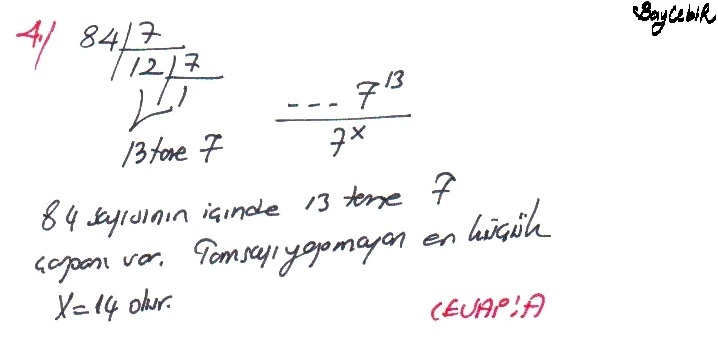 BaycebiR
4./ 84 7
12 7
1
13 tane 7
--- 7^13
7^x
84 sayısının içinde 13 tane 7
çarpanı var. Tamsayı yapmayan en küçük
X=14 olur.
CEVAP: A